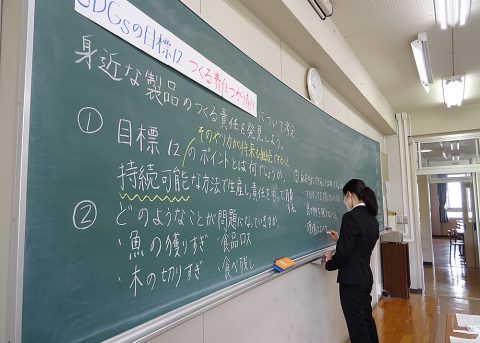 SDGsの目標12 つくる責任つかう責任 について考え、
身近な製品のつくる責任を発見しよう。
① 目標12のポイントとは何でしょうか。
そのやり方が将来も継続できること
持続可能な方法で生産し、責任を持って消費
② どのようなことが問題になっていますか。
・魚の獲りすぎ ・食品ロス
・木の切りすぎ ・食べ残し
③